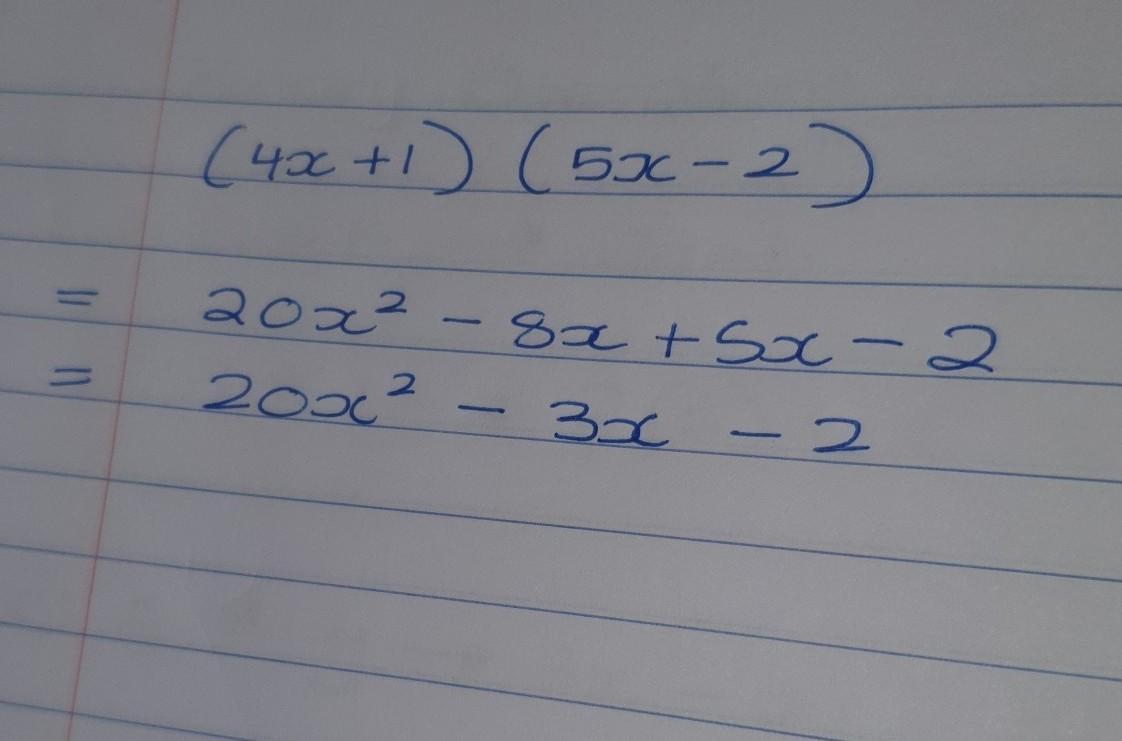 (4x+1) (5x-2)
= 20x² - 8x + 5x - 2
= 20x² - 3x - 2